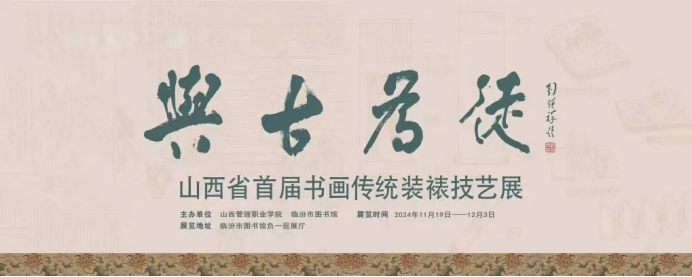 與古為徒
山西省首届书画传统装裱技艺展
主办单位 山西管理职业学院 临汾市图书馆 展览时间 2024年11月19日——12月3日
展览地址 临汾市图书馆负一层展厅